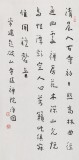 清晨入古寺初日照高林曲徑
通幽處禪房花木深山光悅
鳥性潭影空人心萬籟此俱
寂鐘磬音
常建破山寺後禪院